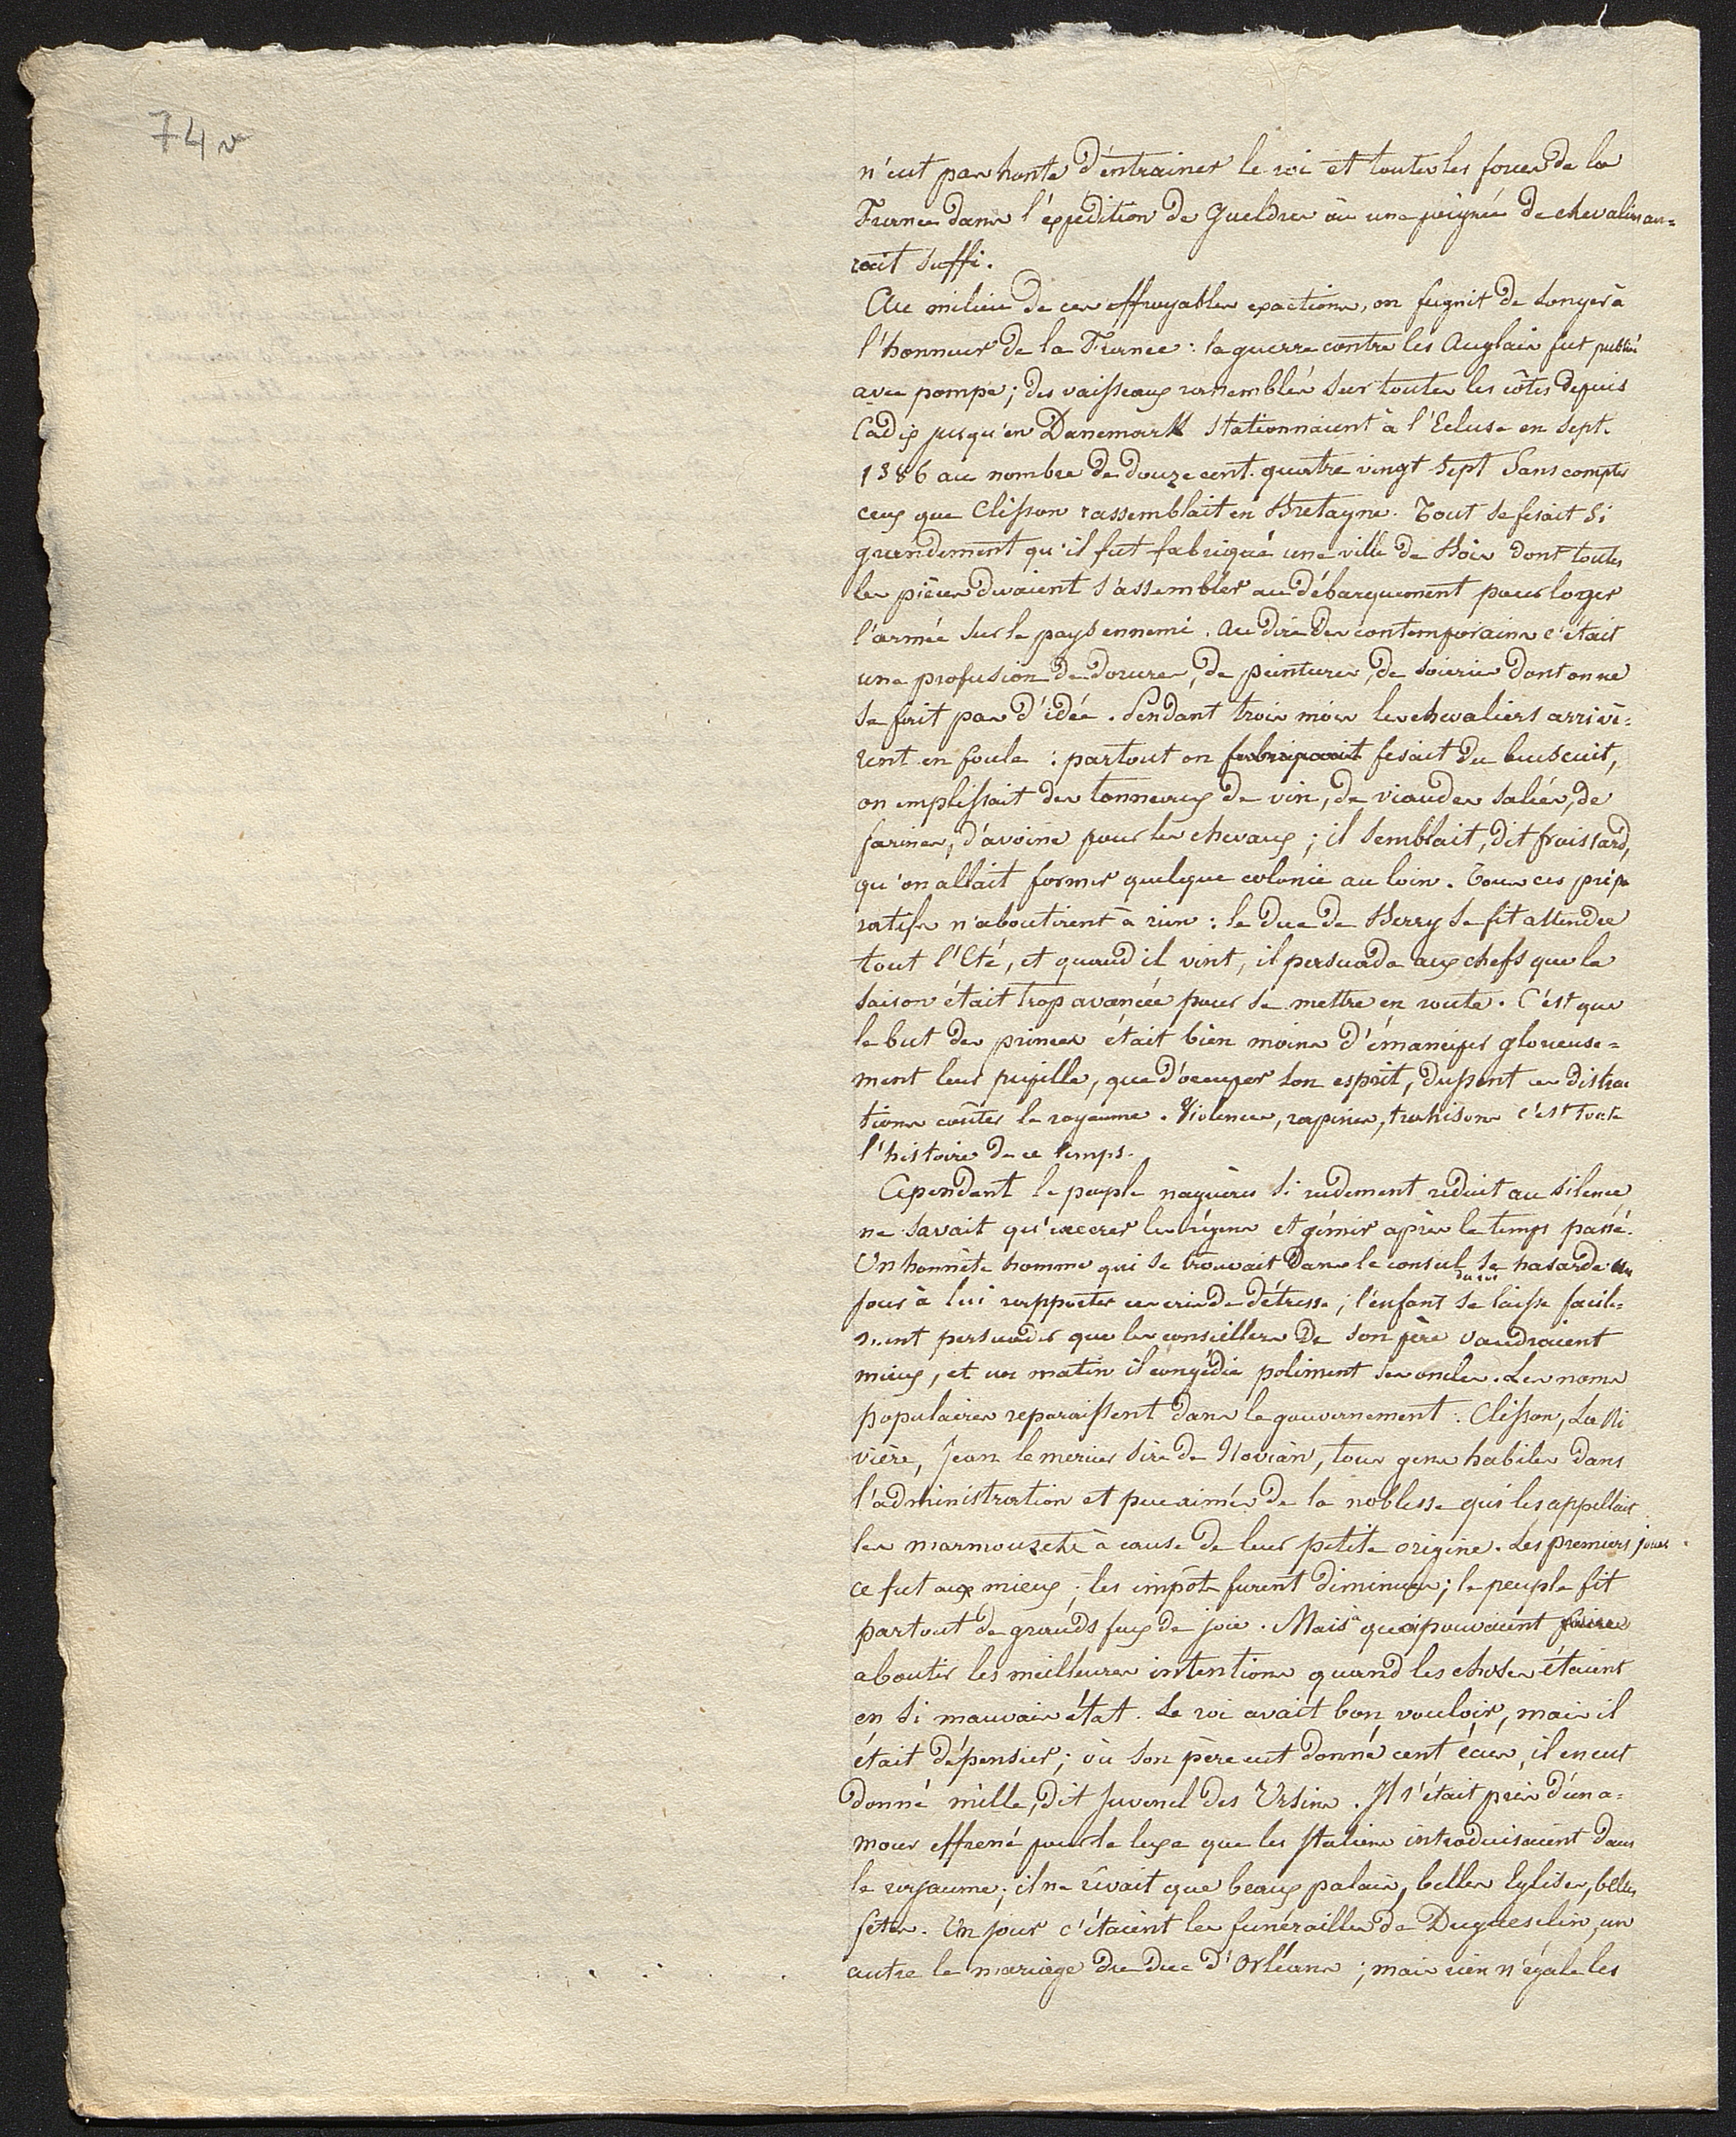 74 v
n'eut pas honte d'entrainer le roi et toutes les forces de la
France dans l'expédition de Gueldres où une poignée de chevaliers au=
rait suffi.
Au milieu de ces effroyables exactions, on feignit de songer à
l'honneur de la France : la guerre contre les Anglais fut publiée
avec pompe ; des vaisseaux rassemblés sur toutes les côtes depuis
Cadix jusqu'en Danemark stationnaient à l'Ecluse en Sept.
1386 au nombre de douze cent quatre vingt sept sans compter
ceux que Clisson rassemblait en Bretagne. Tout se fesait si
grandement qu'il fut fabriqué une ville de Bois dont toutes
les pièces devaient s'assembler au débarquement pour loger
l'armée sur le pays ennemi. Au dire des contemporains c'était
une profusion de dorures, de peintures, de soieries dont on ne
se fait pas d'idée. Pendant trois mois les chevaliers arrivè=
rent en foule : partout on fesait du buiscuit,
on emplissait des tonneaux de vin, de viandes salées, de
farines, d'avoine pour les chevaux ; il semblait, dit froissard,
qu'on allait former quelque colonie au loin. Tous ces prépa
ratifs n'aboutirent à rien : le duc de Berry se fit attendre
tout l'Eté, et quand il vint, il persuada aux chefs que la
saison était trop avancée pour se mettre en route. C'est que
le but des princes était bien moins d'émanciper glorieuse=
ment leur pupille, que d'occuper son esprit, dussent ces distrac
tions coûter le royaume. Violences, rapines, trahisons c'est toute
l'histoire de ce temps.
Cependant le peuple naguères si rudement réduit au silence
ne savait qu'exécrer les régens et gémir après le temps passé.
Un honnête homme qui se trouvait dans le conseil du roi se hasarde un
jour à lui rapporter ces cris de détresse ; l'enfant se laisse facile=
ment persuader que les conseillers de son père vaudraient
mieux, et un matin il congédie poliment ses oncles. Les noms
populaires reparaissent dans le gouvernement : Clisson, La Ri
vière, Jean le mercier sire de Novian, tous gens habiles dans
l'administration et peu aimés de la noblesse qui les appellait
les marmouzets à cause de leur petite origine. Les premiers jours
ce fut aux mieux ; les impôts furent diminués ; le peuple fit
partout de grands feux de joie. Mais à quoi pouvaient faire
aboutir les meilleures intentions quand les choses étaient
en si mauvais état. Le roi avait bon vouloir, mais il
était dépensier ; où son père eut donné cent écus, il en eut
donné mille, dit Juvenel des Ursins. Il s'était pris d'un a=
mour effrené pour le luxe que les Italiens introduisaient dans
le royaume ; il ne rêvait que beaux palais, belles Eglises, belles
fêtes. Un jour c'étaient les funérailles de Duguesclin, un
autre le mariage du duc d'Orléans ; mais rien n'égale les